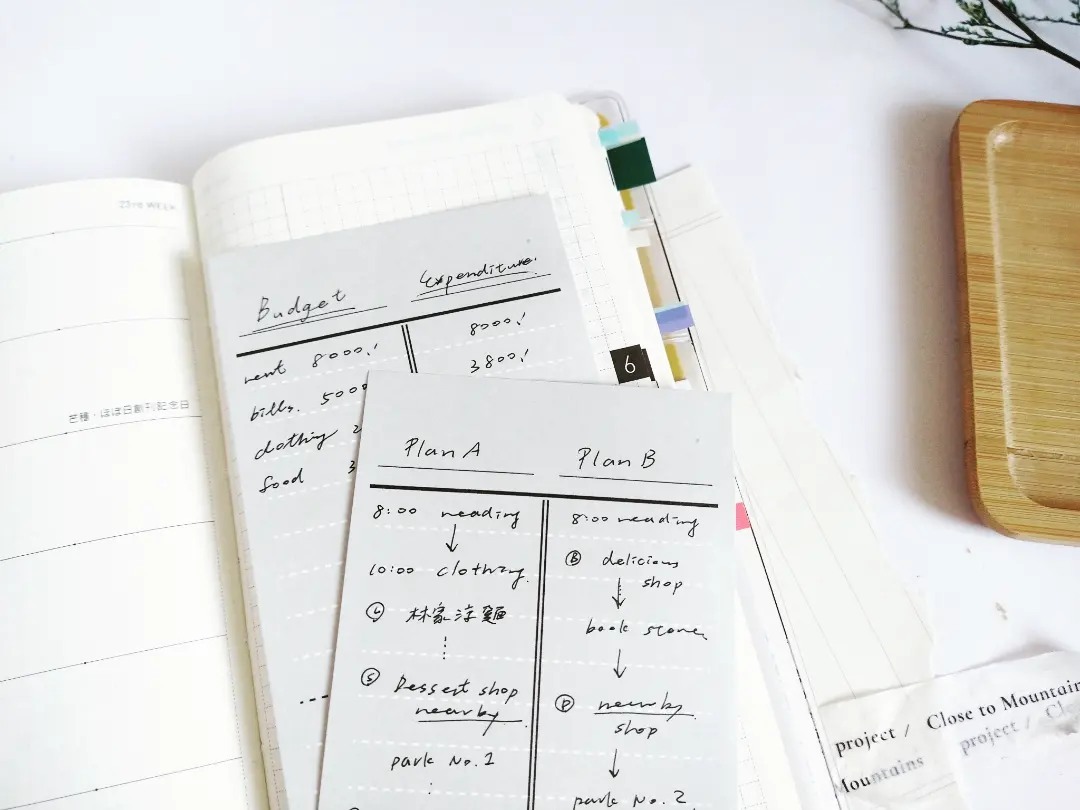 23rd WEEK
芒種・ほぼ日創刊記念日
Budget
Expenditure
rent 8000.!
8000.!
bills. 500
3800.!
clothing 2
food 3
6
Plan A
8:00 reading
10:00 clothing.
Ⓛ 林家涼麵
Ⓢ Dessert shop
nearby.
park No.1
Plan B
8:00 reading
Ⓑ delicious
shop
book store.
Ⓓ nearby
shop
park No.2
project / Close to Mountain
project / Clo
Mountains